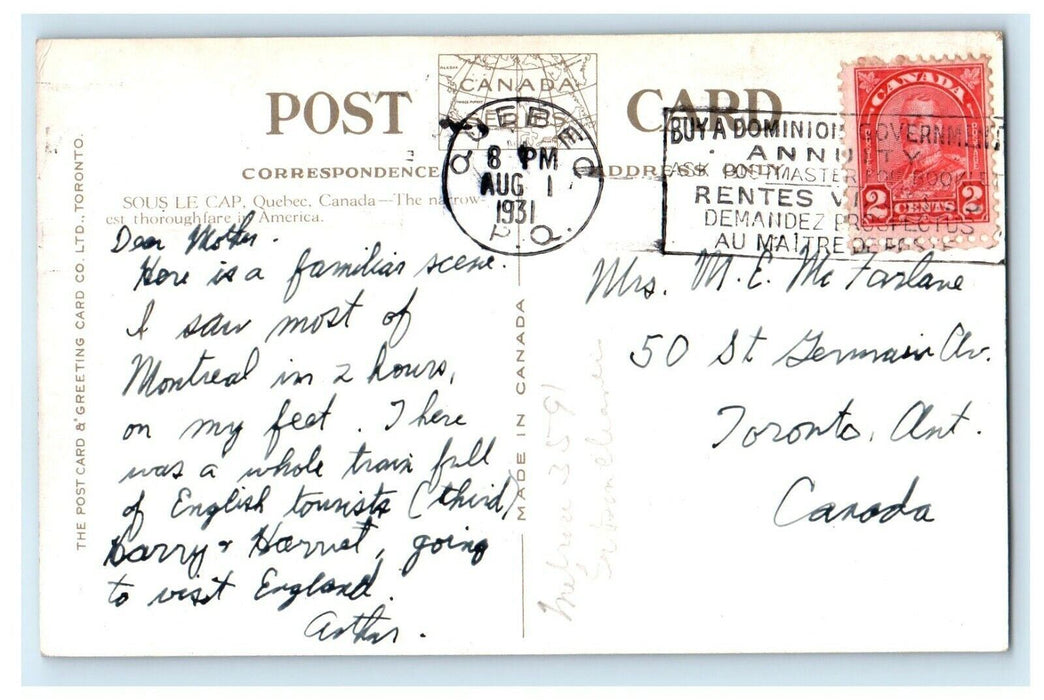 POST CARD
CANADA
CORRESPONDENCE
ADDRESS ONLY
SOUS LE CAP, Quebec, Canada—The narrow-
est thoroughfare in America.
QUEBEC
8 PM
AUG 1
1931
P.Q.
BUY A DOMINION GOVERNMENT
ANNUITY
ASK POSTMASTER FOR BOOK
RENTES
DEMANDEZ PROSPECTUS
AU MAÎTRE DE POSTE
CANADA
2 CENTS 2
Dear Mother.
Here is a familiar scene.
I saw most of
Montreal in 2 hours,
on my feet. There
was a whole train full
of English tourists (third)
Harry & Harriet, going
to visit England.
Arthur.
Mrs. M. E. McFarlane
50 St Germain Av.
Toronto, Ont.
Canada
MADE IN CANADA
THE POST CARD & GREETING CARD CO. LTD., TORONTO.
Melrose 3591